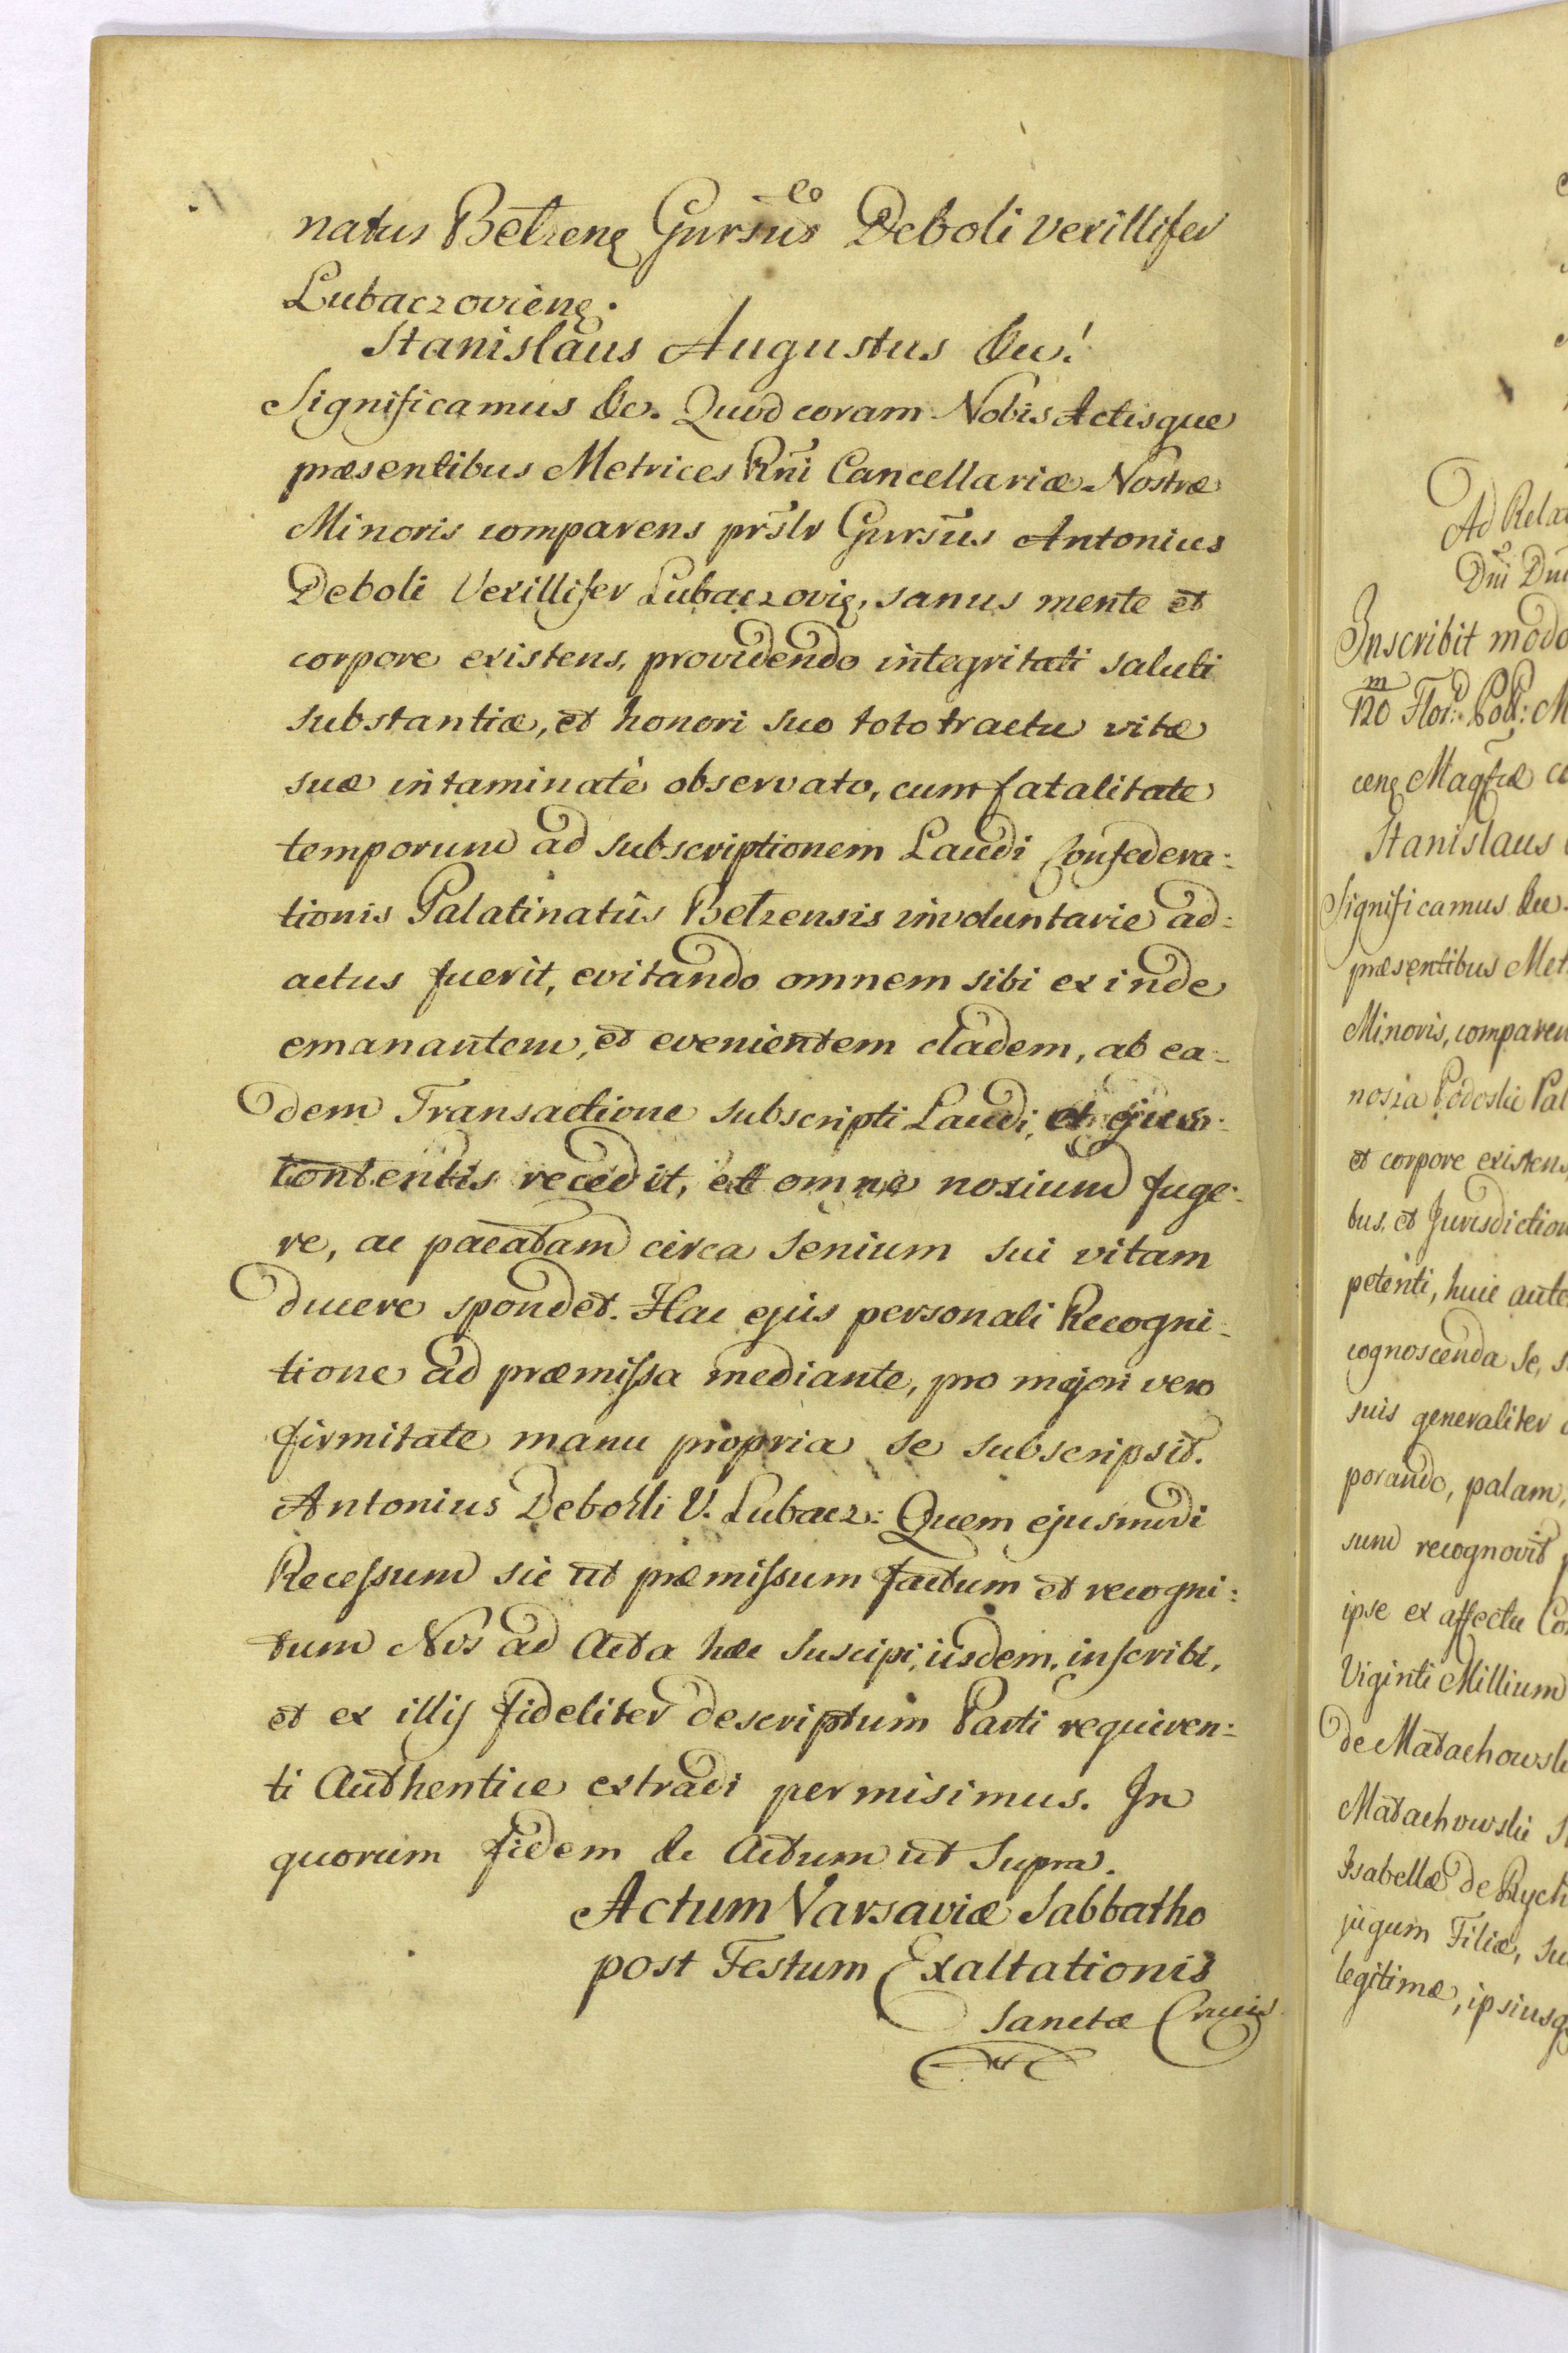 natus Belzenę Gnrsus eo Deboli Vexillifer
Lubaczoviēnę.
Stanislaus Augustus &c!
Significamus &c. Quod coram Nobis Actisque
præsentibus Metrices Rni Cancellariæ Nostræ
Minoris comparens prslr Gnrsus Antonius
Deboli Vexillifer Lubaczovię, sanus mente et
corpore existens, providendo integritati saluti
substantiæ, et honori suo toto tractu vitæ
suæ intaminatè observato, cum fatalitate
temporum ad subscriptionem Laudi Confedera:
tionis Palatinatûs Belzensis involuntarie ad:
actus fuerit, evitando omnem sibi exinde
emanantem, et evenientem cladem, ab ea:
dem Transactione subscripti Laudi, et ejus
contentis recedit, et omne noxium fuge:
re, ac pacatam circa senium sui vitam
ducere spondet. Hac ejus personali Recogni:
tione ad præmissa mediante, pro majori vero
firmitate manu propria se subscripsit.
Antonius Debolli V. Lubacz: Quem ejusmodi
Recessum sic ut præmissum factum et recogni:
tum Nos ad Acta hæc suscipi, iisdem, inscribi,
et ex illis fideliter descriptum Parti requiren:
ti Authentice extradi permisimus. In
quorum fidem &c Actum ut Supra.
Actum Varsaviæ Sabbatho
post Festum Exaltationis
Sanctæ Crucis
Ad Rela
Dni Dni
Inscribit modo
m
120 Flor: Pol: M
cenę Magfiæ
Stanislaus
Significamus &c.
præsentibus Met
Minoris, comparen
nosza Podoski Pal
et corpore existens
bus, et Jurisdiction
petenti, huic aute
cognoscenda se, s
suis generaliter
porando, palam,
sum recognovit
ipse ex affectu Co
Viginti Millium
de Małachowsk
Małachowski S
Isabellæ de Rych
jugum Filiæ, su
legitimæ, ipsiusq